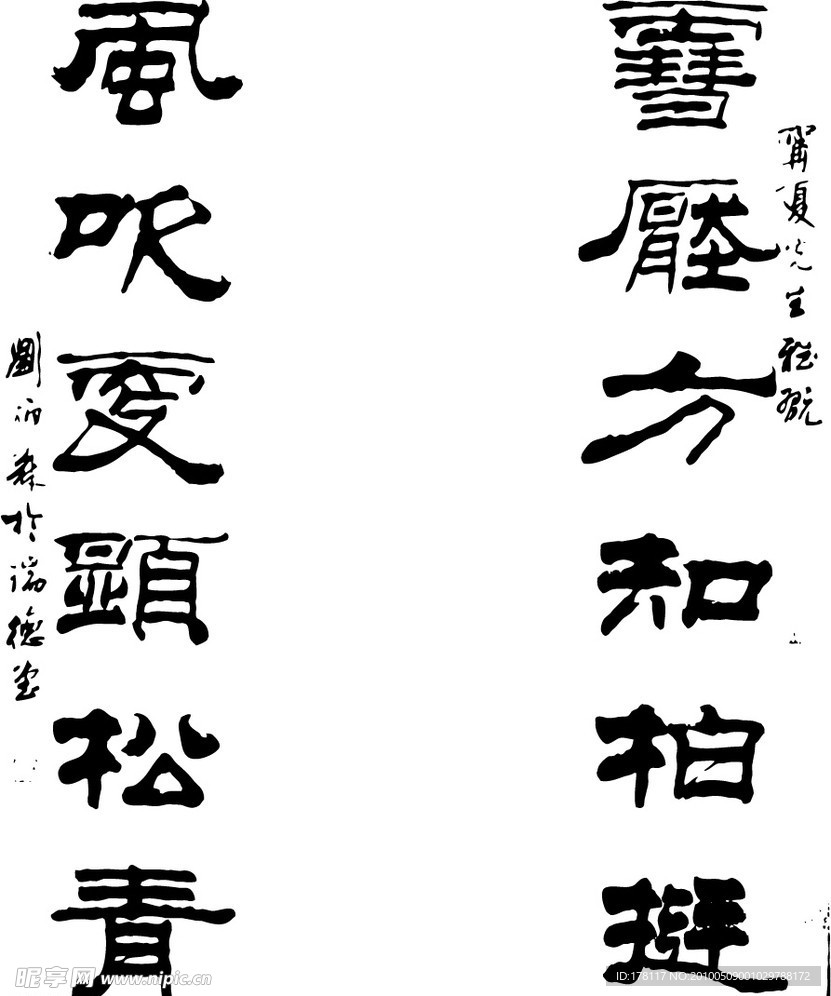 夏先生雅
雪壓方知柏挺
風吹更顯松青
劉炳森於瑞德堂
昵享网 www.nipic.cn
ID:178117 NO.20100509001029788172